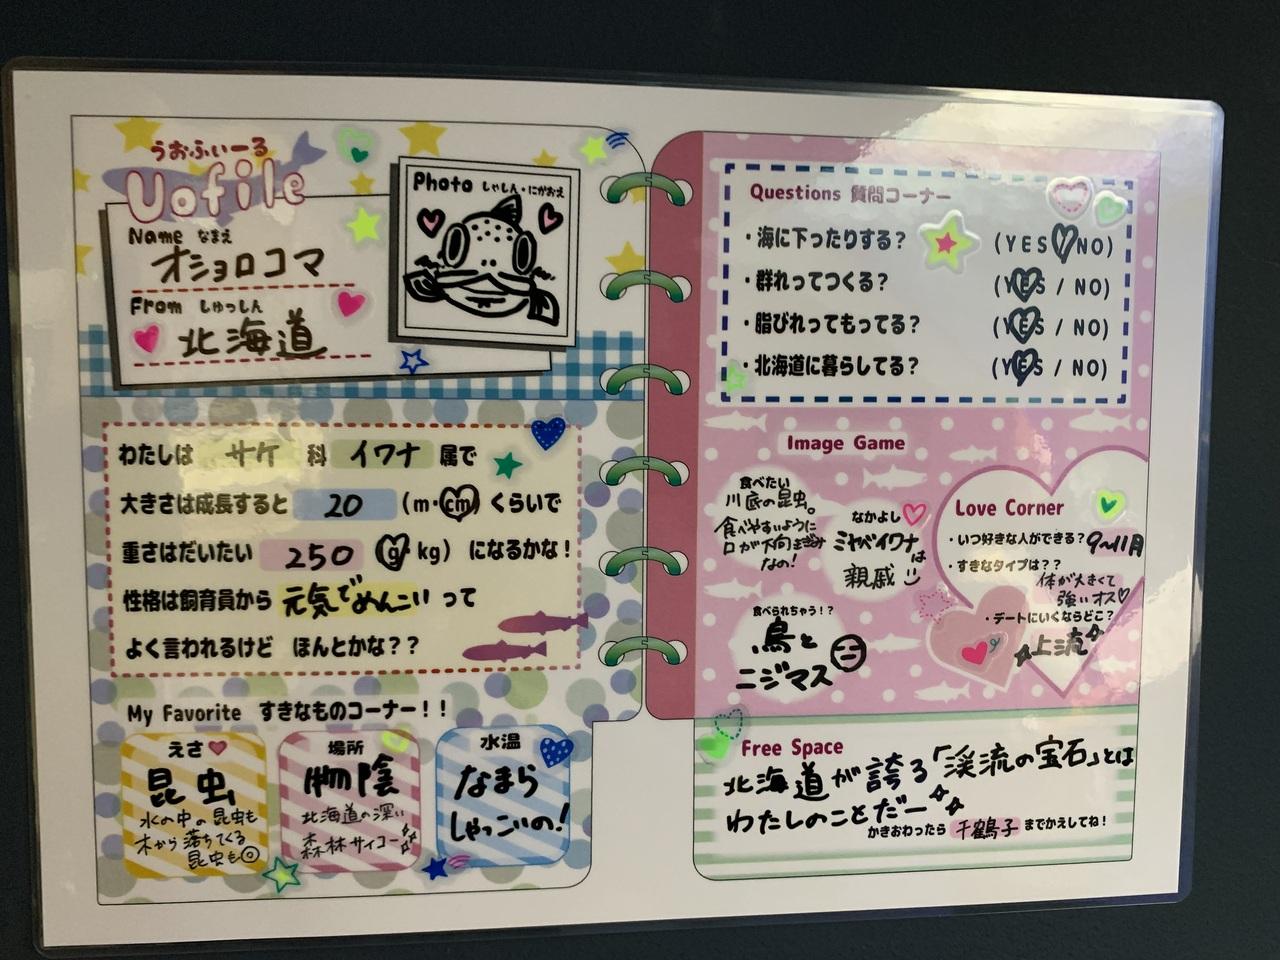 うおふぃーる
Uofile
Name なまえ
オショロコマ
From しゅっしん
北海道
Photo しゃしん・にがおえ
わたしは サケ 科 イワナ 属で
大きさは成長すると 20 (m・cm) くらいで
重さはだいたい 250 (g kg) になるかな!
性格は飼育員から 元気でめんこい って
よく言われるけど ほんとかな??
My Favorite すきなものコーナー!!
えさ♥
昆虫
水の中の昆虫も
木から落ちてくる
昆虫も◎
場所
物陰
北海道の深い
森林サイコー
水温
なまら
しゃっこいの!
Questions 質問コーナー
・海に下ったりする? (YES / NO)
・群れってつくる? (YES / NO)
・脂びれってもってる? (YES / NO)
・北海道に暮らしてる? (YES / NO)
Image Game
食べたい
川底の昆虫。
食べやすいように
口が下向きぎみ
なの!
なかよし♡
ミヤベイワナ
は
親戚
食べられちゃう!?
鳥と
ニジマス
Love Corner
・いつ好きな人ができる? 9~11月
・すきなタイプは??
体が大きくて
強いオス♡
・デートにいくならどこ?
上流
Free Space
北海道が誇る「渓流の宝石」とは
わたしのことだー
かきおわったら 千鶴子 までかえしてね!